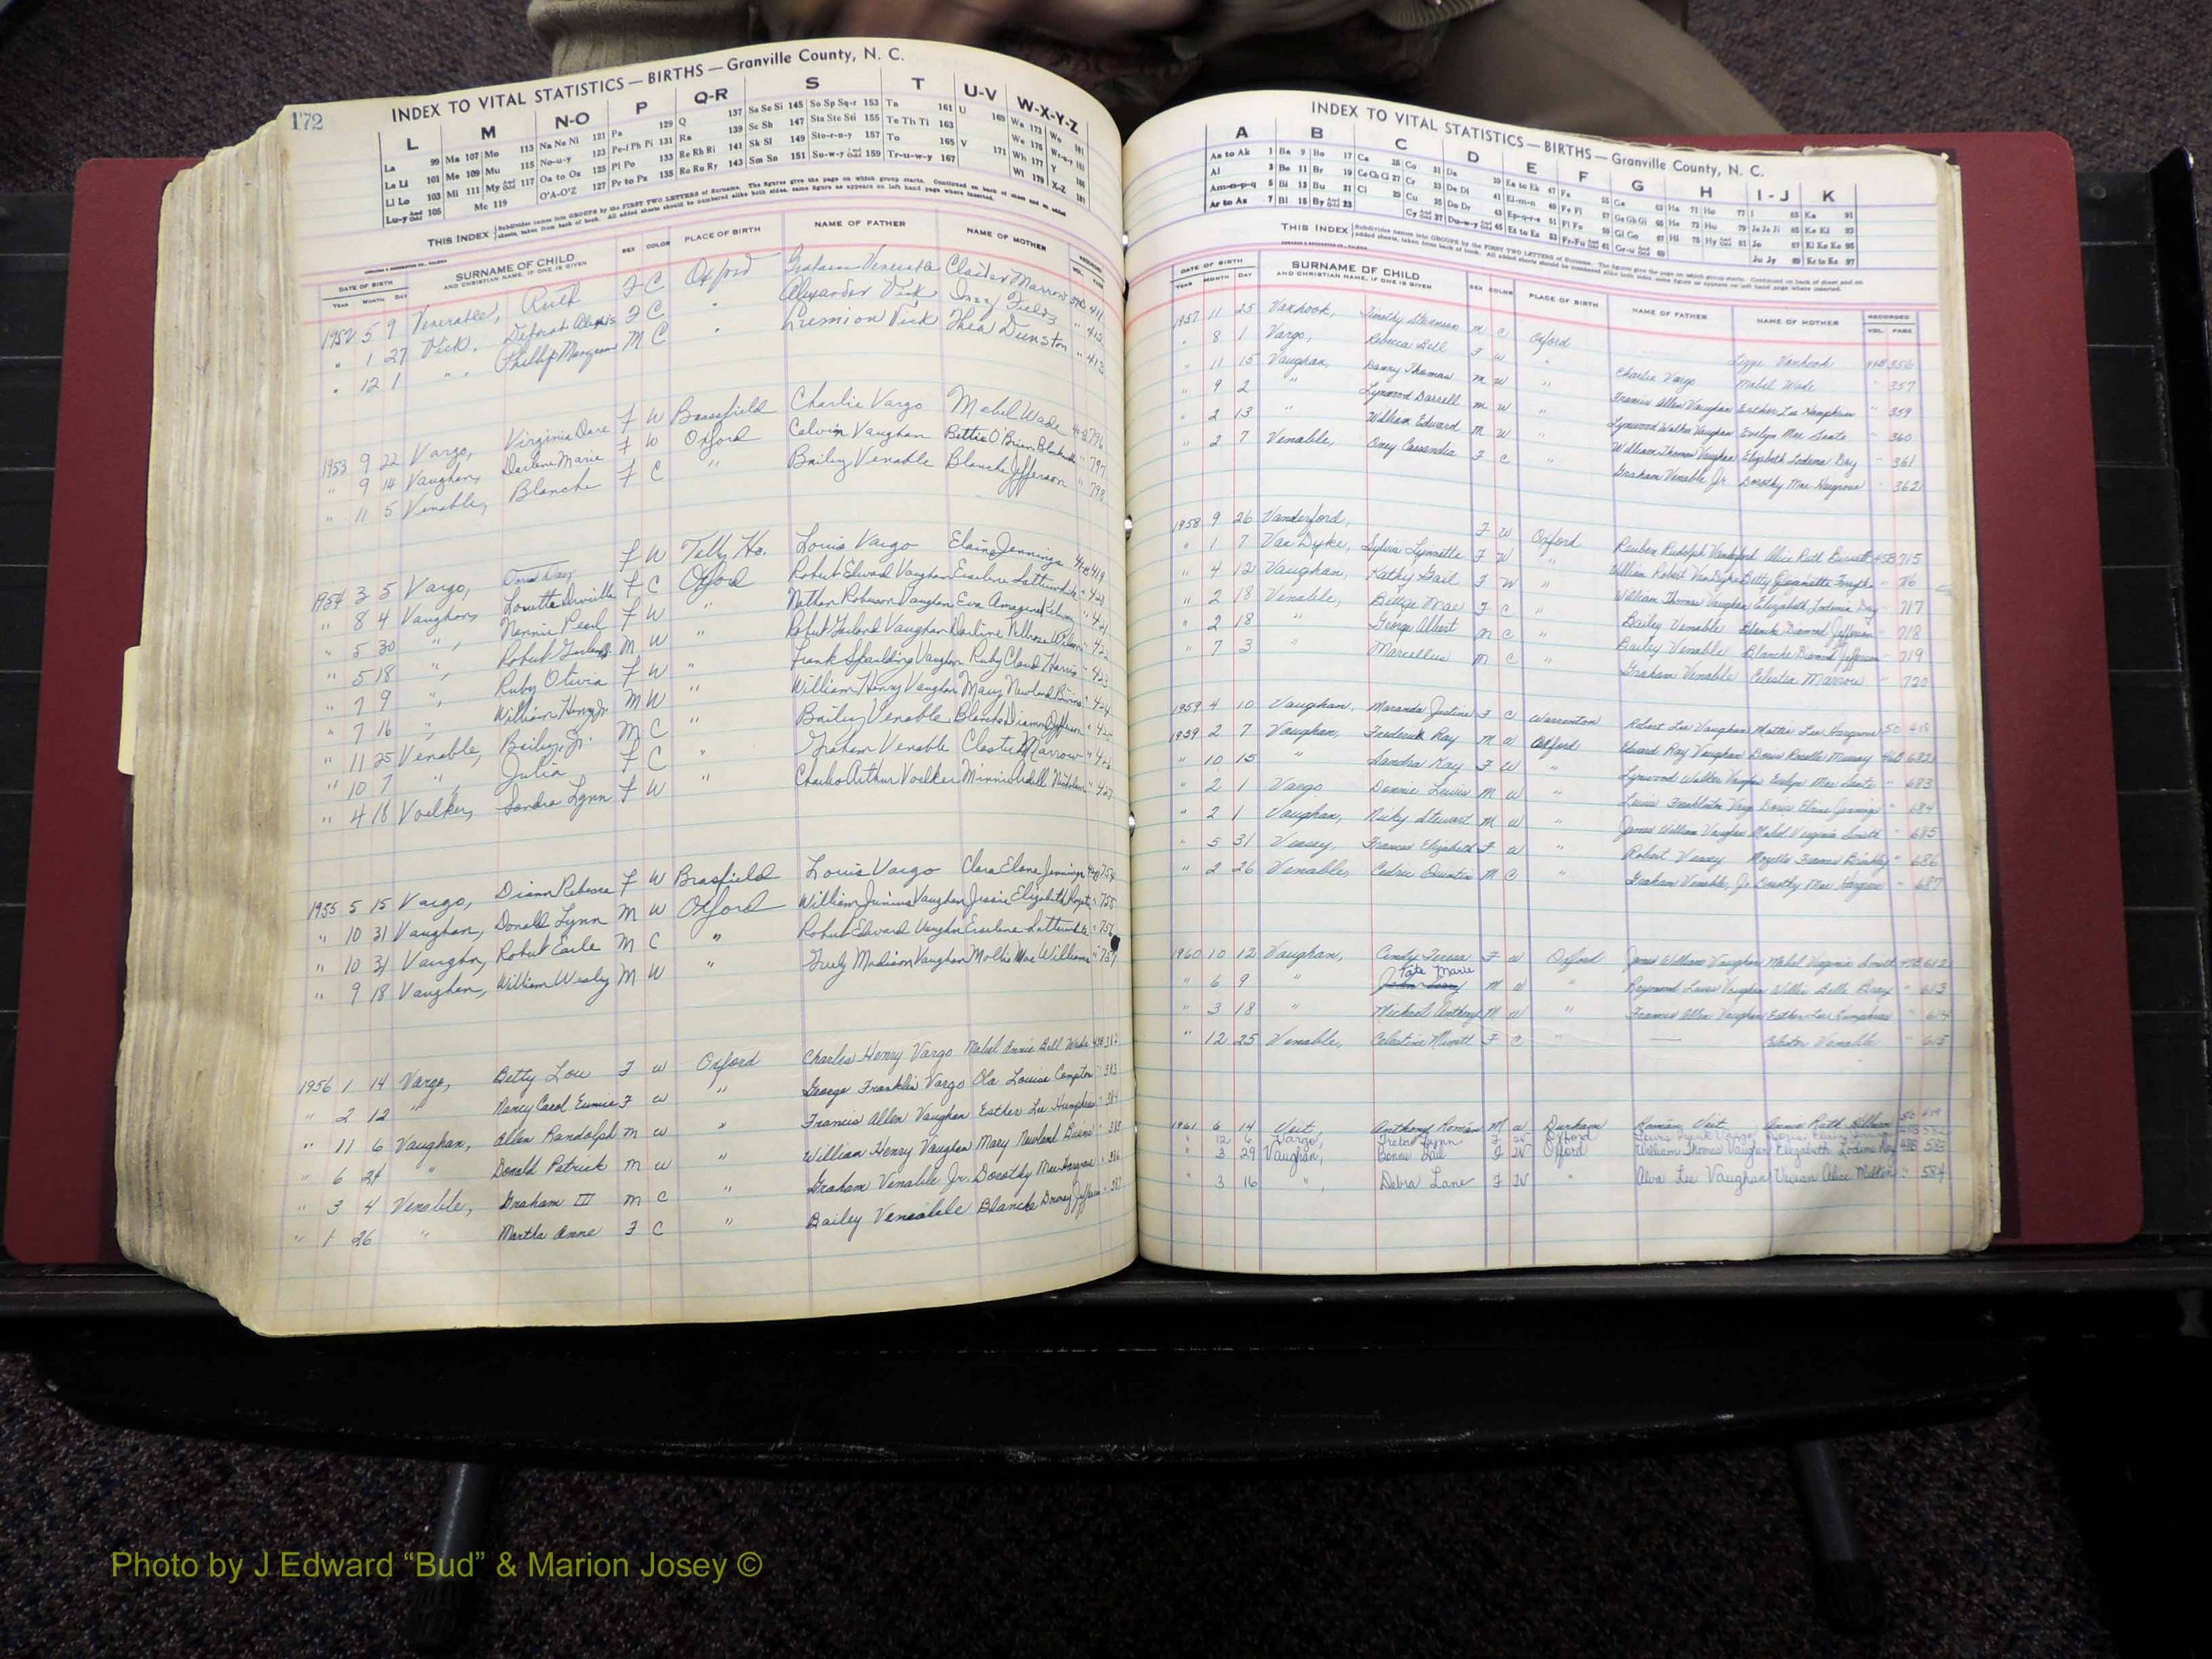 172
INDEX TO VITAL STATISTICS — BIRTHS — Granville County, N. C.
L M N-O P Q-R S T U-V W-X-Y-Z
La 99 Ma 107 Mo 113 Na Ne Ni 121 Pa 129 Q 137 Sa Se Si 145 So Sp Sq-r 153 Ta 161 U 169 Wa 173 Wo 181
Le Li 101 Me 109 Mu 115 No-u-y 123 Pe-f Ph Pi 131 Ra 139 Sc Sh 147 Sta Ste Sti 155 Te Th Ti 163
Ll Lo 103 Mi 111 My And Odd 117 Oa to Oz 125 Pl Po 133 Re Rh Ri 141 Sk Sl 149 Sto-r-n-y 157 To 165 V 171 Wh 177 Y
Lu-y And Odd 105 Mc 119 O'A-O'Z 127 Pr to Pz 135 Ro Ru Ry 143 Sm Sn 151 Su-w-y And Odd 159 Tr-u-w-y 167 Wi 179 X-Z
THIS INDEX Subdivides names into GROUPS by the FIRST TWO LETTERS of Surname. The figures give the page on which group starts. Continued on back of sheet and on added
sheets, taken from back of book. All added sheets should be numbered alike both sides, same figure as appears on left hand page where inserted.
DATE OF BIRTH SURNAME OF CHILD SEX COLOR PLACE OF BIRTH NAME OF FATHER NAME OF MOTHER RECORDED
YEAR MONTH DAY AND CHRISTIAN NAME, IF ONE IS GIVEN VOL. PAGE
1952 5 9 Venerable, Ruth F C Oxford Graham Venerable Claster Marrow 411
" 1 27 Vick, Deborah F C " Alexander Vick Fields " 412
" 12 1 " " Phillip M C " Vick Thea Dunston " 413
1953 9 22 Vargo, Virginia Dare F W Brassfield Charlie Vargo Mabel Wade 796
" 9 14 Vaughan, Darlene Marie F W Oxford Calvin Vaughan Bettie O'Brian " 797
" 11 5 Venable, Blanche F C " Bailey Venable Blanche Jefferson " 798
1954 3 5 Vargo, F W Tally Ho. Louis Vargo Elaine Jennings 419
" 8 4 Vaughan, F C Oxford Robert Edward Vaughan " 420
" 5 30 " , Nannie Pearl F W " Nathan Robinson Vaughan Eva " 421
" 5 18 " , Robert M W " Robert Vaughan Darline " 422
" 7 9 " , Ruby Olivia F W " Frank Spaulding Vaughan Ruby Harris " 423
" 7 16 " , William Henry Jr. M W " William Henry Vaughan Mary Newland Burns " 424
" 11 25 Venable, Bailey, Jr. M C " Bailey Venable Blanche Jefferson " 425
" 10 7 " Julia F C " Graham Venable Marrow " 426
" 4 18 Voelker, Sandra Lynn F W " Charles Arthur Voelker Minnie " 427
1955 5 15 Vargo, Diann Rebecca F W Brasfield Louis Vargo Clara Elane Jennings 754
" 10 31 Vaughan, Donald Lynn M W Oxford William Junius Vaughan Jessie Elizabeth " 755
" 10 31 Vaughn, Robert Earle M C " Robert Edward Vaughn " 756
" 9 18 Vaughan, William Wesley M W " Madison Vaughan Mollie Mae Williams " 757
1956 1 14 Vargo, Betty Lou F W Oxford Charles Henry Vargo Mabel Annie Bell Wade 382
" 2 12 " Nancy Carol Eunice F W " George Franklin Vargo Ola Louise Compton " 383
" 11 6 Vaughan, Allen Randolph M W " Francis Allen Vaughan Esther Lee Humphries " 384
" 6 24 " Donald Patrick M W " William Henry Vaughan Mary Newland Burns " 385
" 3 4 Venable, Graham III M C " Graham Venable Jr. Dorothy Mae Hargrove " 386
" 1 26 " Martha Anne F C " Bailey Venable Blanche Jefferson " 387
INDEX TO VITAL STATISTICS — BIRTHS — Granville County, N. C.
A B C D E F G H I - J K
Aa to Ak 1 Ba 9 Bo 17 Ca 25 Co 31 Da 39 Ea to Ek 47 Fa 55 Ga 63 Ha 71 Ho 77 I 83 Ka 91
Al 3 Be 11 Br 19 Ce Ch Ci 27 Cr 33 De Di 41 El-m-n 49 Fe Fi 57 Ge Gh Gi 65 He 73 Hu 79 Ja Je Ji 85 Ke Ki 93
Am-n-p-q 5 Bi 13 Bu 21 Cl 29 Cu 35 Do Dr 43 Ep-q-r-s 51 Fl Fo 59 Gl Go 67 Hi 75 Hy And Odd 81 Jo 87 Kl Kn Ko 95
Ar to Az 7 Bl 15 By And Odd 23 Cy And Odd 37 Du-w-y And Odd 45 Et to Ez 53 Fr-Fu And Odd 61 Gr-u And Odd 69 Ju Jy 89 Kr to Kz 97
THIS INDEX Subdivides names into GROUPS by the FIRST TWO LETTERS of Surname. The figures give the page on which group starts. Continued on back of sheet and on
added sheets, taken from back of book. All added sheets should be numbered alike both sides, same figure as appears on left hand page where inserted.
DATE OF BIRTH SURNAME OF CHILD SEX COLOR PLACE OF BIRTH NAME OF FATHER NAME OF MOTHER RECORDED
YEAR MONTH DAY AND CHRISTIAN NAME, IF ONE IS GIVEN VOL. PAGE
1957 11 25 Vanhook, Timothy M C Oxford Lizzie Vanhook 356
" 8 1 Vargo, Rebecca Bell F W " Charlie Vargo Mabel Wade " 357
" 11 15 Vaughan, Danny Thomas M W " Francis Allen Vaughan Esther Lee Humphries " 359
" 9 2 " Lynwood Darrell M W " Lynwood Walker Vaughan Evelyn Mae " 360
" 2 13 " William Edward M W " William Thomas Vaughan Elizabeth Lodema Day " 361
" 2 7 Venable, Cassandra F C " Graham Venable Jr. Dorothy Mae Hargrove " 362
1958 9 26 Vanderford, F W Oxford Reuben Rudolph Vanderford Alice Ruth Barnett 715
" 1 7 Van Dyke, Sylvia Lynnette F W " William Robert Van Dyke Betty Jeanette " 716
" 4 12 Vaughan, Kathy Gail F W " William Thomas Vaughan Elizabeth Day " 717
" 2 18 Venable, Bettye Mae F C " Bailey Venable Blanche Diamond Jefferson " 718
" 2 18 " George Albert M C " Bailey Venable Blanche Diamond Jefferson " 719
" 7 3 " Marcellus M C " Graham Venable Celestia Marrow " 720
1959 4 10 Vaughan, Maranda Justina F C Warrenton Robert Lee Vaughan Mattie Lee Hargrove 50
1959 2 7 Vaughan, Frederick Ray M W Oxford Edward Ray Vaughan Doris Murray 682
" 10 15 " Sandra Kay F W " Lynwood Walker Vaughan Evelyn Mae " 683
" 2 1 Vargo Donnie Lewis M W " Lewis Franklin Vargo Doris Elaine Jennings " 684
" 2 1 Vaughan, Ricky Stewart M W " James William Vaughan Mabel Virginia Smith " 685
" 5 31 Veasey, Frances Elizabeth F W " Robert Veasey Frances " 686
" 2 26 Venable, Cedric Quintin M C " Graham Venable, Jr. Dorothy Mae Hargrove " 687
1960 10 12 Vaughan, Cindy Teresa F W Oxford James William Vaughan Mabel Virginia Smith 612
" 6 9 " Tate Marie M W " Raymond Lewis Vaughan Willie Belle Bray " 613
" 3 18 " Michael Anthony M W " Francis Allen Vaughan Esther Lee Humphries " 614
" 12 25 Venable, Celestine F C " — Venable " 615
1961 6 14 Veit, Anthony Roman M W Durham Roman Veit Annie Ruth 50
" 12 6 Vargo, Lynn F W Oxford
" 3 29 Vaughan, Bonnie Gail F W Oxford William Thomas Vaughan Elizabeth 583
" 3 16 " , Debra Lane F W " Alva Lee Vaughan Vivian Alice " 584
Photo by J Edward “Bud” & Marion Josey ©